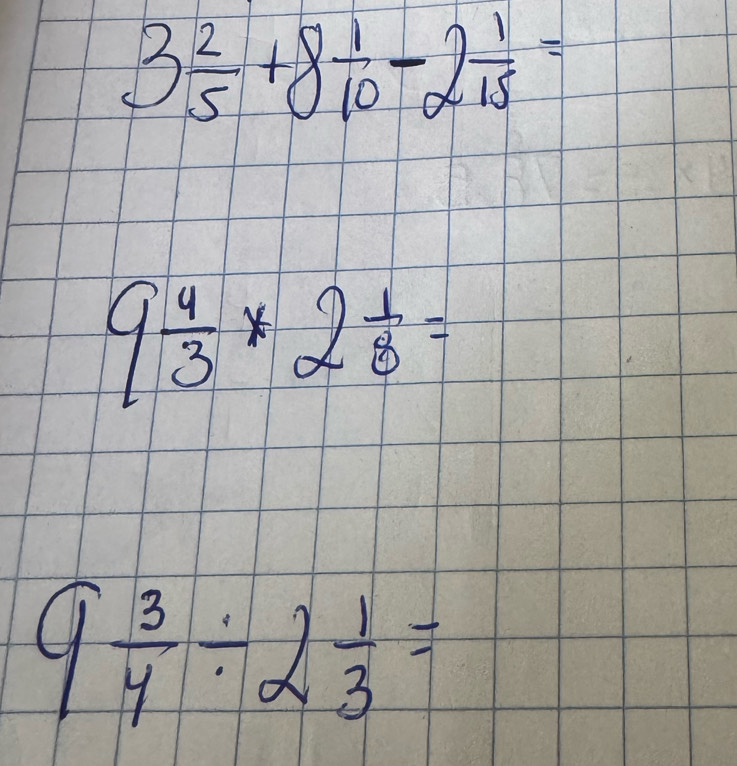 3 2/5 + 8 1/10 - 2 1/15 =
9 4/3 * 2 1/8 =
9 3/4 ÷ 2 1/3 =